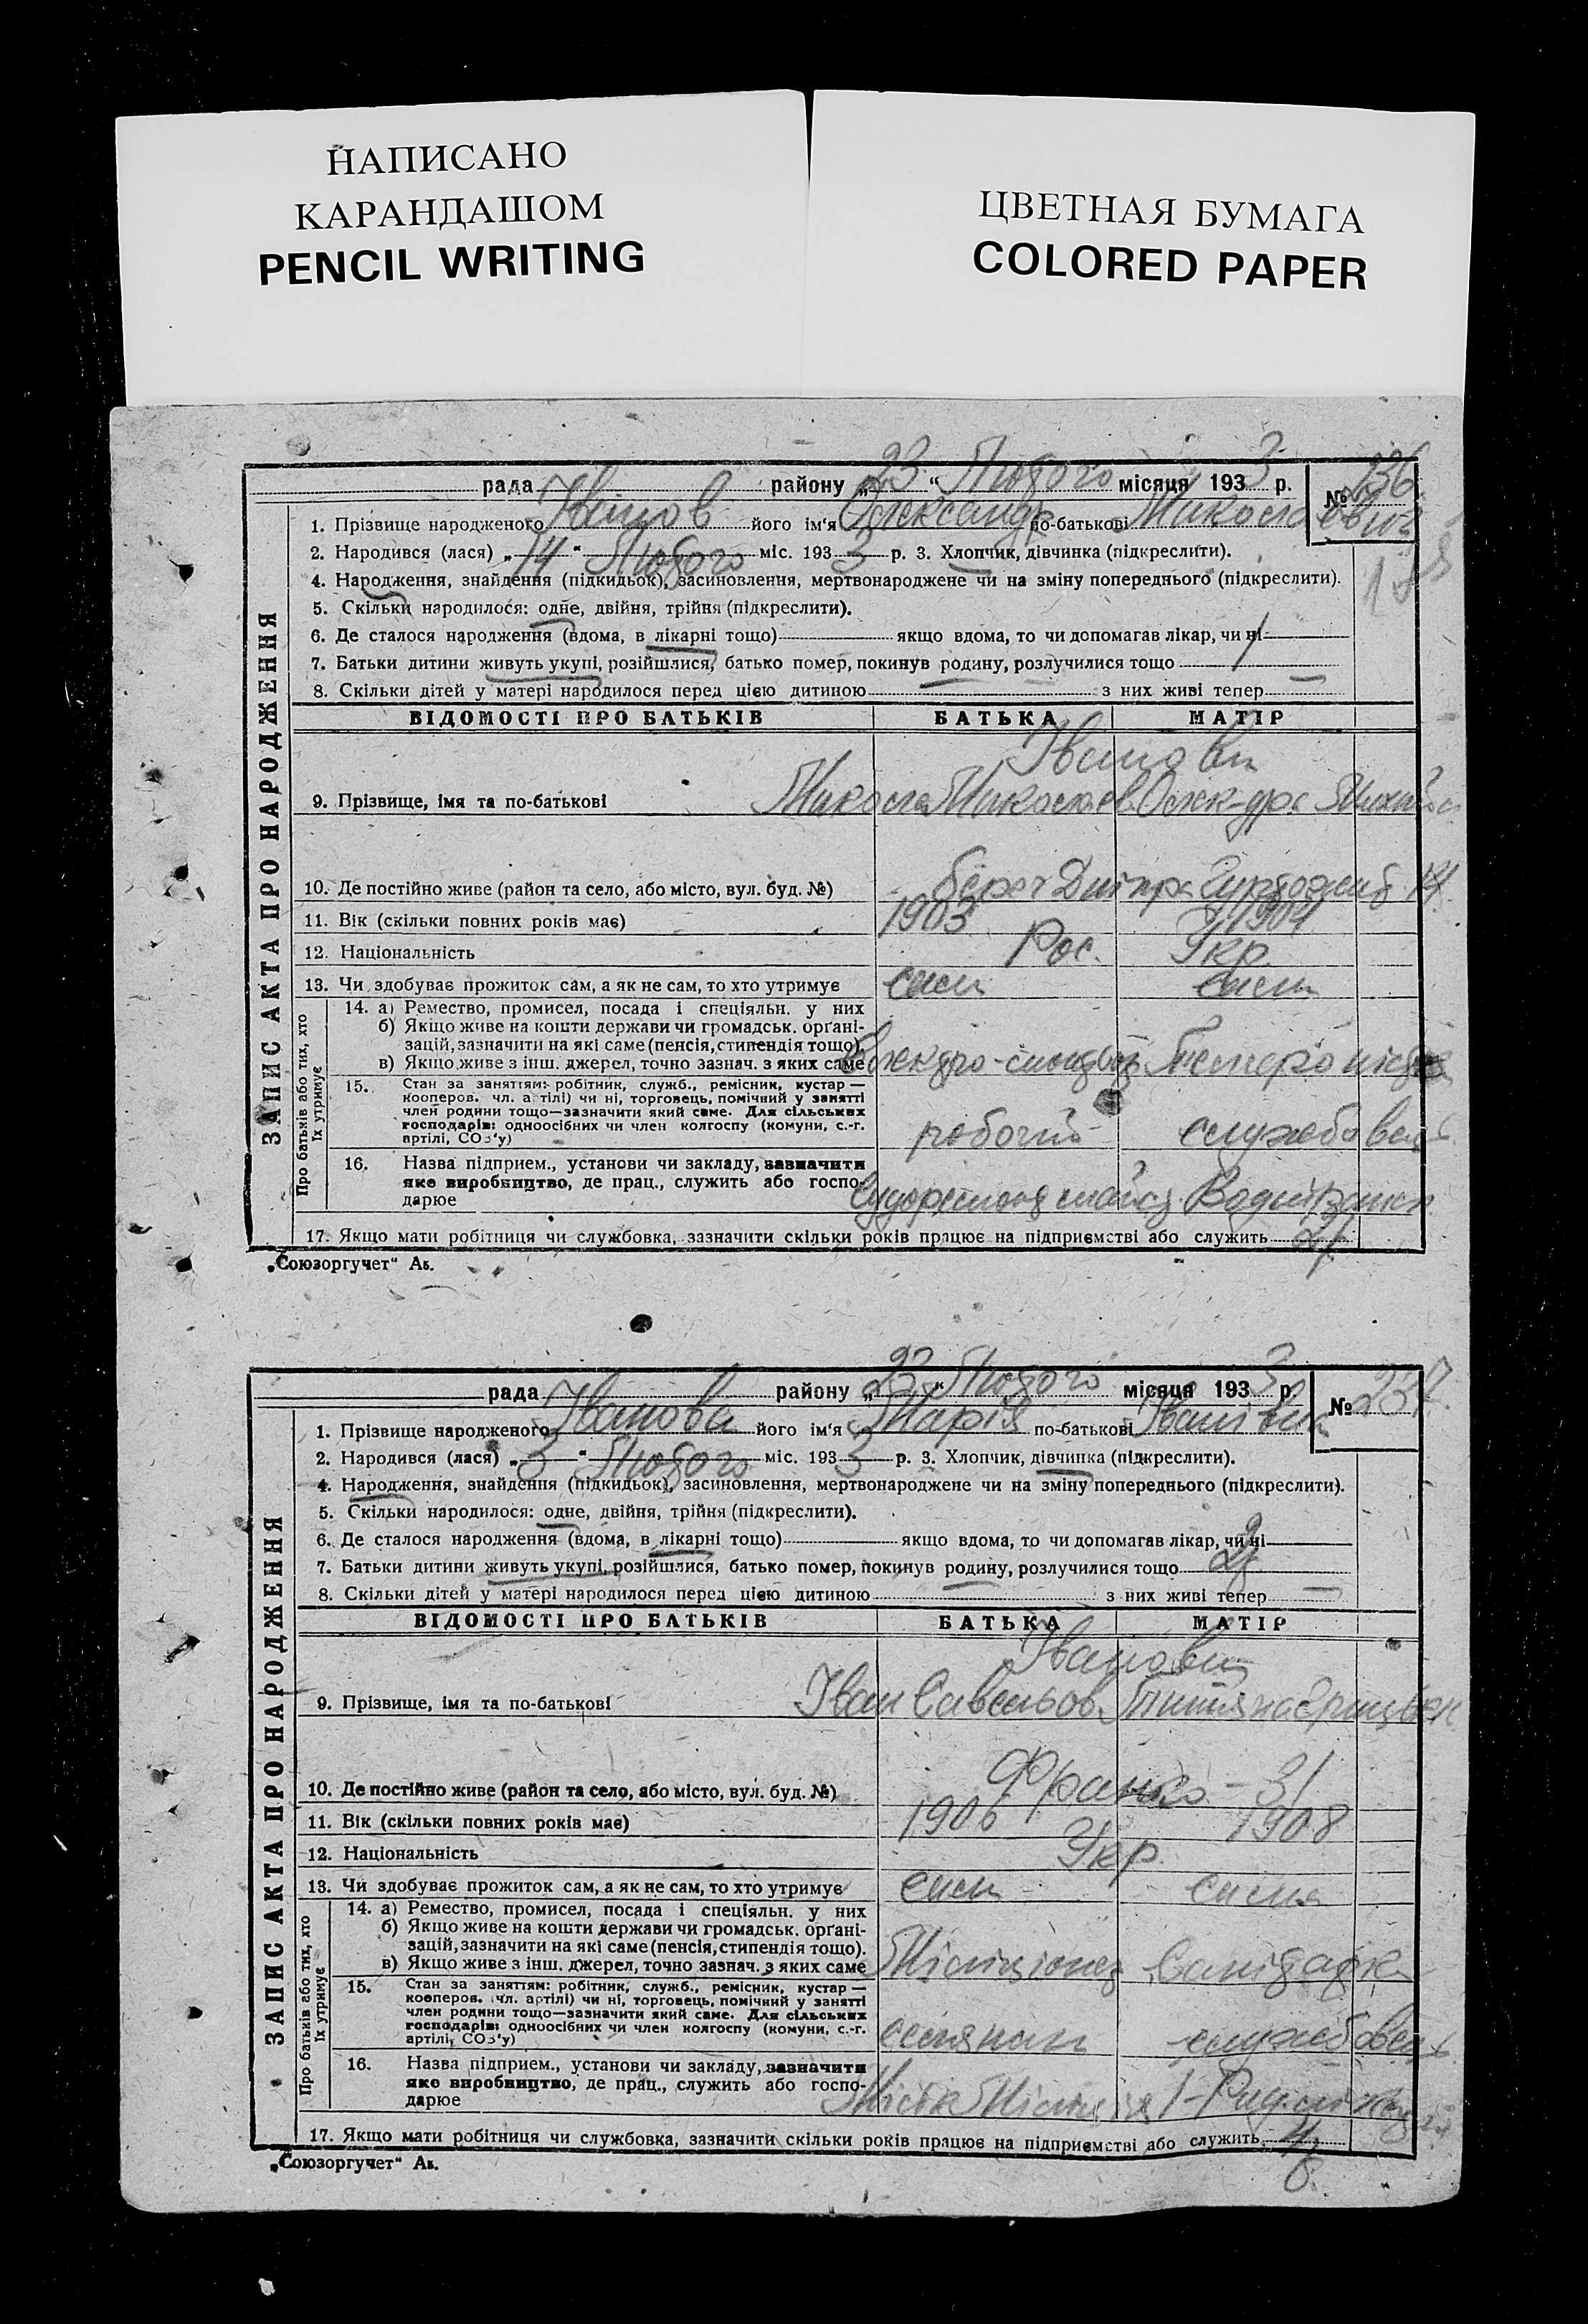 НАПИСАНО
КАРАНДАШОМ
PENCIL WRITING
ЦВЕТНАЯ БУМАГА
COLORED PAPER
ЗАПИС АКТА ПРО НАРОДЖЕННЯ
рада району „23“ Лютого місяця 1933 р. № 236
1. Прізвище народженого Іванов його ім'я Олександр по-батькові Миколаєвич
2. Народився (лася) „14“ Лютого міс. 1933 р. 3. Хлопчик, дівчинка (підкреслити).
4. Народження, знайдення (підкидьок), засиновлення, мертвонароджене чи на зміну попереднього (підкреслити).
5. Скільки народилося: одне, двійня, трійня (підкреслити).
6. Де сталося народження (вдома, в лікарні тощо) якщо вдома, то чи допомагав лікар, чи ні
7. Батьки дитини живуть укупі, розійшлися, батько помер, покинув родину, розлучилися тощо
8. Скільки дітей у матері народилося перед цією дитиною — з них живі тепер —
ВІДОМОСТІ ПРО БАТЬКІВ БАТЬКА МАТІР
Іванови
9. Прізвище, імя та по-батькові Микола Миколаєв Олек-дра
10. Де постійно живе (район та село, або місто, вул. буд. №) берег Дніпра Гуртожит
11. Вік (скільки повних років має) 1903 1904
12. Національність Рос. Укр.
13. Чи здобуває прожиток сам, а як не сам, то хто утримує сам сама
Про батьків або тих, хто їх утримує
14. а) Ремество, промисел, посада і спеціяльн. у них
б) Якщо живе на кошти держави чи громадськ. орґані-
зацій, зазначити на які саме (пенсія, стипендія тощо).
в) Якщо живе з інш. джерел, точно зазнач. з яких саме
15. Стан за заняттям: робітник, служб., ремісник, кустар —
кооперов. чл. артілі) чи ні, торговець, помічний у занятті
член родини тощо—зазначити який саме. Для сільських
господарів: одноосібних чи член колгоспу (комуни, с.-г.
артілі, СОЗ'у) робочий службовець
16. Назва підприєм., установи чи закладу, зазначити
яке виробництво, де прац., служить або госпо-
дарюе
17. Якщо мати робітниця чи службовка, зазначити скільки років працює на підприємстві або служить
„Союзоргучет“ Аь.
ЗАПИС АКТА ПРО НАРОДЖЕННЯ
рада району „23“ Лютого місяця 1933 р. № 237
1. Прізвище народженого Іванова його ім'я Марія по-батькові Іванівна
2. Народився (лася) „3“ Лютого міс. 1933 р. 3. Хлопчик, дівчинка (підкреслити).
4. Народження, знайдення (підкидьок), засиновлення, мертвонароджене чи на зміну попереднього (підкреслити).
5. Скільки народилося: одне, двійня, трійня (підкреслити).
6. Де сталося народження (вдома, в лікарні тощо) якщо вдома, то чи допомагав лікар, чи ні
7. Батьки дитини живуть укупі, розійшлися, батько помер, покинув родину, розлучилися тощо
8. Скільки дітей у матері народилося перед цією дитиною — з них живі тепер —
ВІДОМОСТІ ПРО БАТЬКІВ БАТЬКА МАТІР
Іванови
9. Прізвище, імя та по-батькові Іван Савельов
10. Де постійно живе (район та село, або місто, вул. буд. №) Франко - 31
11. Вік (скільки повних років має) 1906 1908
12. Національність Укр.
13. Чи здобуває прожиток сам, а як не сам, то хто утримує сам сама
Про батьків або тих, хто їх утримує
14. а) Ремество, промисел, посада і спеціяльн. у них
б) Якщо живе на кошти держави чи громадськ. орґані-
зацій, зазначити на які саме (пенсія, стипендія тощо).
в) Якщо живе з інш. джерел, точно зазнач. з яких саме Міліціонер Санітарка
15. Стан за заняттям: робітник, служб., ремісник, кустар —
кооперов. чл. артілі) чи ні, торговець, помічний у занятті
член родини тощо—зазначити який саме. Для сільських
господарів: одноосібних чи член колгоспу (комуни, с.-г.
артілі, СОЗ'у) селянин службовець
16. Назва підприєм., установи чи закладу, зазначити
яке виробництво, де прац., служить або госпо-
дарюе Міліція
17. Якщо мати робітниця чи службовка, зазначити скільки років працює на підприємстві або служить
„Союзоргучет“ Аь.